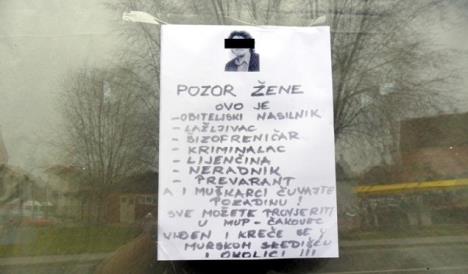 POZOR ŽENE
OVO JE
- OBITELJSKI NASILNIK
- LAŽLJIVAC
- ŠIZOFRENIČAR
- KRIMINALAC
- LIJENČINA
- NERADNIK
- PREVARANT
A I MUŠKARCI ČUVAJTE
POZADINU !
SVE MOŽETE PROVJERITI
U MUP - ČAKOVEC
VIĐEN I KREĆE SE U
MURSKOM SREDIŠĆU
I OKOLICI !!!